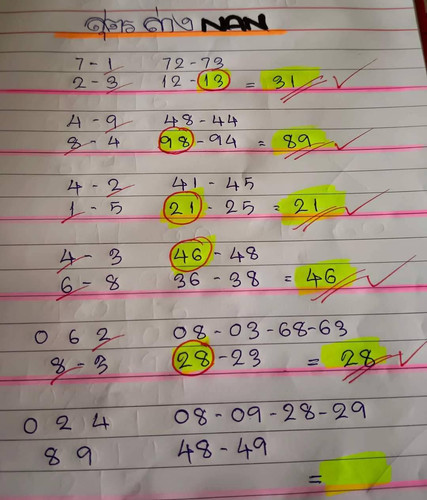 สูตร ล่าง NAN
7 - 1 72 - 73
2 - 3 12 - 13 = 31
4 - 9 48 - 44
8 - 4 98 - 94 = 89
4 - 2 41 - 45
1 - 5 21 - 25 = 21
4 - 3 46 - 48
6 - 8 36 - 38 = 46
0 6 2 08 - 03 - 68 - 63
8 - 3 28 - 23 = 28
0 2 4 08 - 09 - 28 - 29
8 9 48 - 49
=